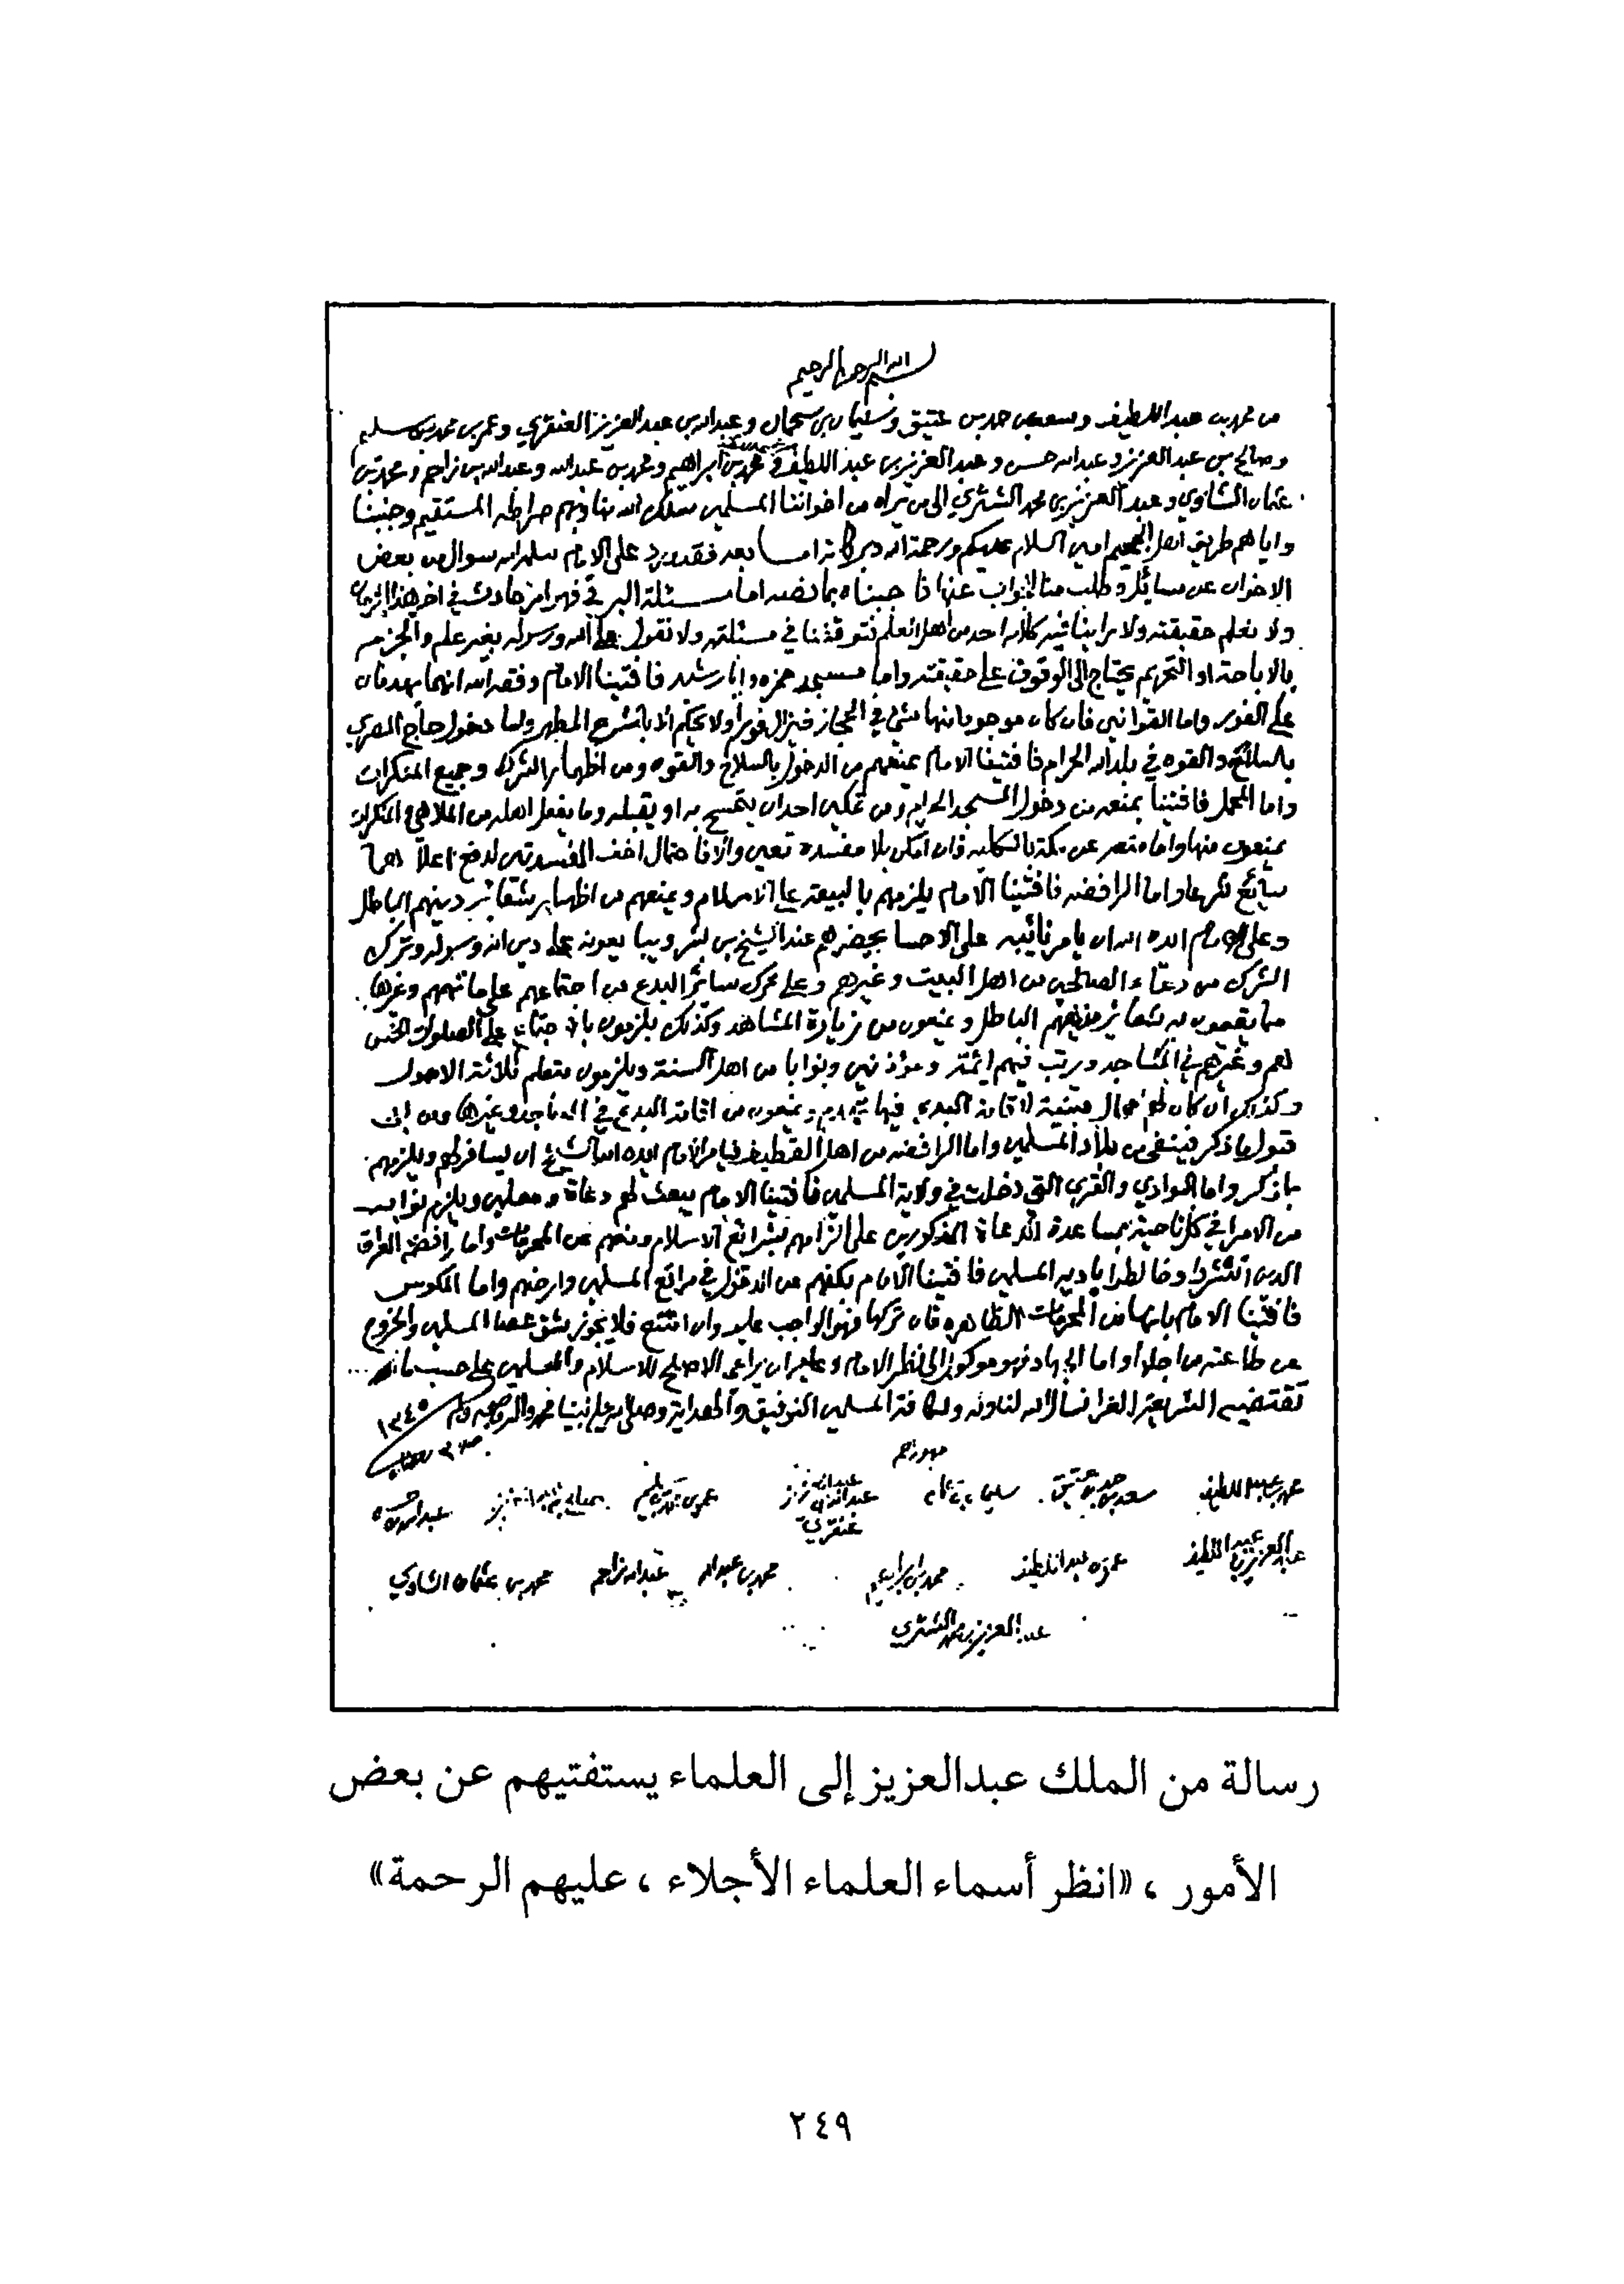 بسم الله الرحمن الرحيم
من محمد بن عبد اللطيف وسعد بن حمد بن عتيق وسليمان بن سحمان وعبد الله بن عبد العزيز العنقري وعمر بن محمد بن سليم
وصالح بن عبد العزيز وعبد الله حسن وعبد العزيز بن عبد اللطيف ومحمد بن ابراهيم ومحمد بن عبد الله وعبد الله بن زاحم ومحمد بن
عثمان الشاوي وعبد العزيز بن محمد الشثري الى من يراه من اخواننا المسلمين سلك الله بنا وبهم صراطه المستقيم وجنبنا
واياهم طريق اهل الجحيم امين السلام عليكم ورحمة الله وبركاته اما بعد فقد ورد على الامام سلمه الله سوال من بعض
الاخوان عن مسائل وطلب منا الجواب عنها فاجبناه بما نصه اما مسئلة البرقي فهو امر حادث في اخر هذا الزمان
ولا نعلم حقيقته ولا راينا فيه كلاما لاحد من اهل العلم فتوقفنا في مسئلته ولا نقول على الله ورسوله بغير علم والجزم
بالاباحة او التحريم يحتاج الى الوقوف على حقيقته واما مسجد حمزه وابا رشيد فافتينا الامام وفقه الله انهما يهدمان
على الفور واما القوانين فان كان موجود منها شئ في الحجاز فيزال فورا ولا يحكم الا بالشرع المطهر واما دخول حاج المصري
بالسلاح والقوه في بلد الله الحرام فافتينا الامام بمنعهم من الدخول بالسلاح والقوه ومن اظهار الشرك وجميع المنكرات
واما المحمل فافتينا بمنعه من دخول المسجد الحرام ومن تمكين احد ان يتمسح به او يقبله وما يفعل اهله من الملاهي والمنكرات
يمنعون منها واما منعه عن مكة بالكليه فان امكن بلا مفسدة تعين والا فاحتمال اخف المفسدتين لدفع اعلاهما
سائغ شرعا واما الرافضه فافتينا الامام يلزمهم بالبيعة على الاسلام ويمنعهم من اظهار شعائر دينهم الباطل
وعلى الامام ايده الله ان يامر نائبه على الاحسا يحضرهم عند الشيخ بن بشر ويبايعونه على دين الله ورسوله وترك
الشرك من دعاء الصالحين من اهل البيت وغيرهم وعلى ترك سائر البدع من اجتماعهم على ماتمهم وغيرها
مما يقيمون به شعائر مذهبهم الباطل ويمنعون من زيارة المشاهد وكذلك يلزمون بالاجتماع على الصلوات الخمس
هم وغيرهم في المساجد ويرتب فيهم ائمة ومؤذنين ونوابا من اهل السنة ويلزمون بتعلم ثلاثة الاصول
وكذلك ان كان لهم محال مبنية لاقامة البدع فيها تهدم ويمنعون من اقامة البدع في المساجد وغيرها ومن ابى
قبول ما ذكر فينفى من بلاد المسلمين واما الرافضه من اهل القطيف فيامر الامام ايده الله الشيخ ان يسافر لهم ويلزمهم
ما ذكر واما البوادي والقرى التي دخلت في ولاية المسلمين فافتينا الامام يبعث لهم دعاة ومعلمين ويلزم نوابه
من الامرا في كل ناحية بمساعدة الدعاة المذكورين على الزامهم بشرائع الاسلام ومنعهم عن المحرمات واما رافضة العراق
الذين انتشروا وخالطوا بادية المسلمين فافتينا الامام بكفهم عن الدخول في مراتع المسلمين وارضهم واما المكوس
فافتينا الامام بانها من المحرمات الظاهره فان تركها فهو الواجب عليه وان امتنع فلا يجوز شق عصا المسلمين والخروج
عن طاعته من اجلها واما الجهاد فهو موكول الى نظر الامام وعليه ان يراعى الاصلح للاسلام والمسلمين على حسب ما
تقتضيه الشريعة الغرا نسال الله لنا وله ولكافة المسلمين التوفيق والهداية وصلى الله على نبينا محمد واله وصحبه وسلم ١٣٤٥
محمد بن عبد اللطيف سعد بن حمد بن عتيق سليمان بن سحمان عبد الله بن عبد العزيز عنقري عمر بن محمد بن سليم صالح بن عبد العزيز عبد الله بن حسن
عبد العزيز بن عبد اللطيف عمر بن عبد اللطيف محمد بن ابراهيم محمد بن عبد الله عبد الله بن زاحم محمد بن عثمان الشاوي
عبد العزيز بن محمد الشثري
رسالة من الملك عبدالعزيز إلى العلماء يستفتيهم عن بعض
الأمور ، «انظر أسماء العلماء الأجلاء ، عليهم الرحمة»
٢٤٩